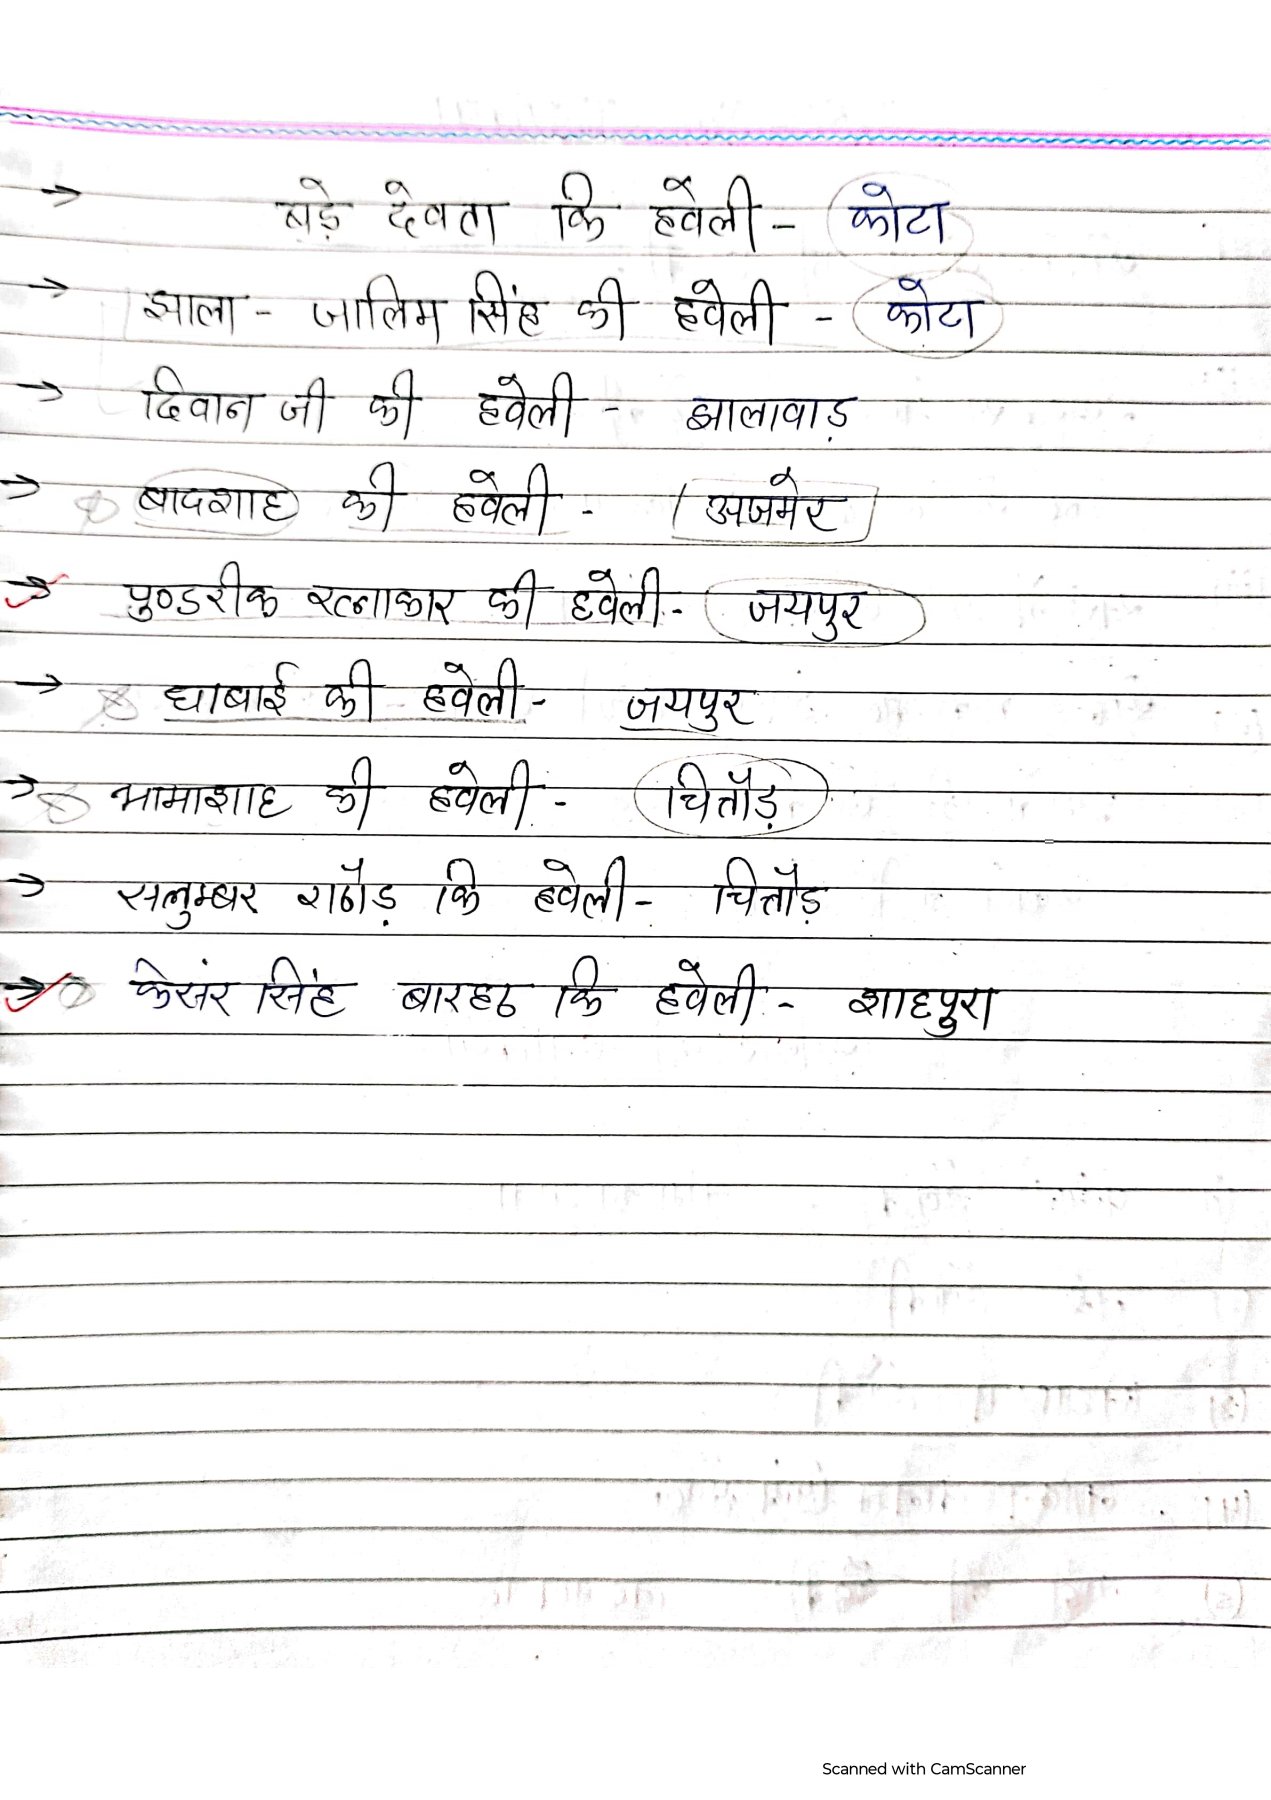 → बड़े देवता कि हवेली - कोटा
→ झाला - जालिम सिंह की हवेली - कोटा
→ दिवान जी की हवेली - झालावाड़
→ बादशाह की हवेली - अजमेर
→ पुण्डरीक रत्नाकार की हवेली - जयपुर
→ घाबाई की हवेली - जयपुर
→ भामाशाह की हवेली - चित्तौड़
→ सलुम्बर राठौड़ कि हवेली - चित्तौड़
→ केसर सिंह बारहठ कि हवेली - शाहपुरा
Scanned with CamScanner